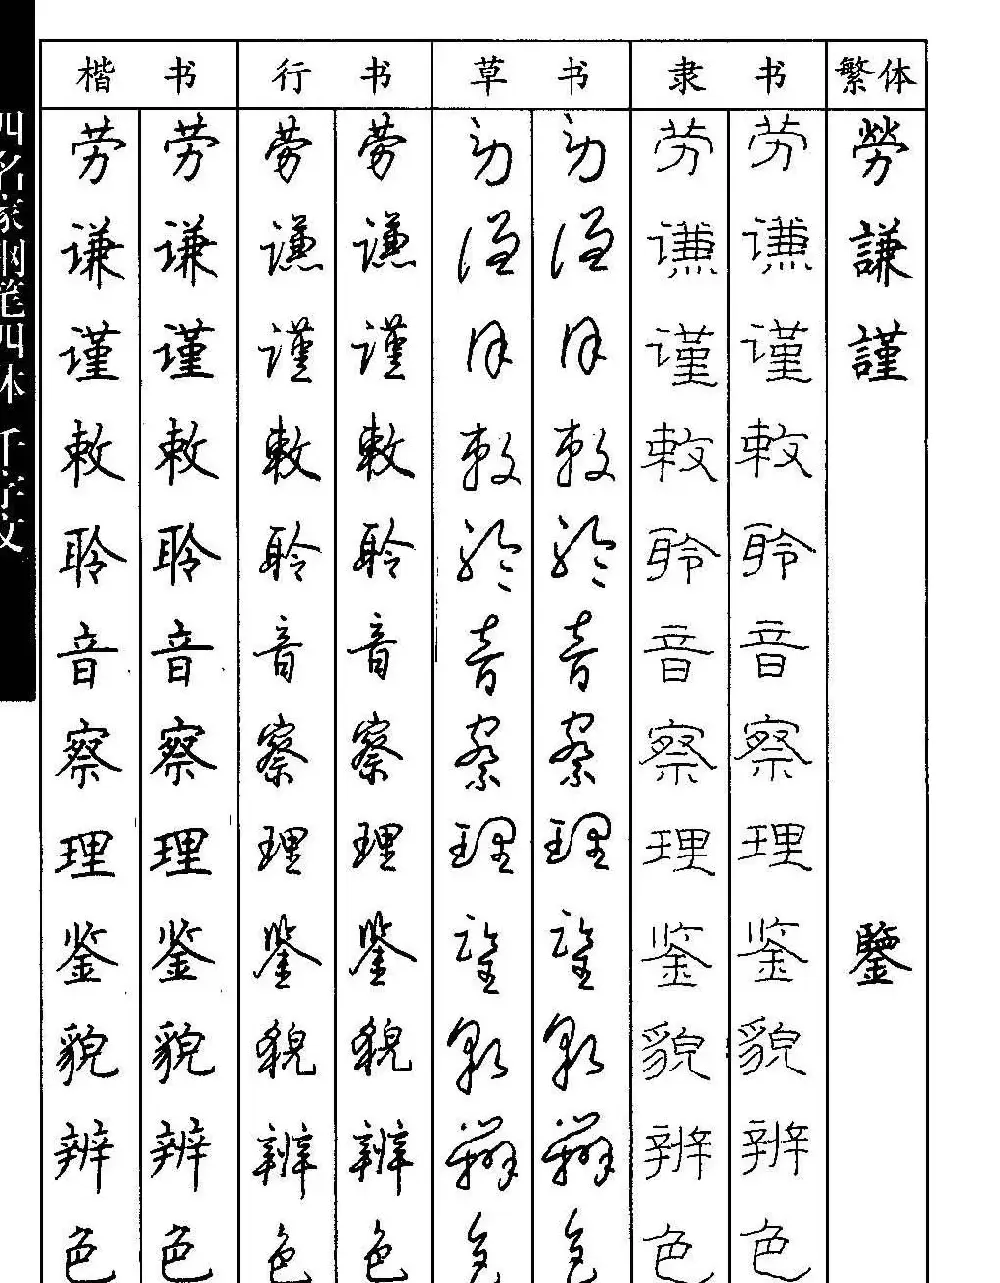 四名家钢笔四体 千字文
楷书 行书 草书 隶书 繁体
劳 劳 劳 劳 劳 劳 劳 劳 勞
谦 谦 谦 谦 谦 谦 谦 谦 謙
谨 谨 谨 谨 谨 谨 谨 谨 謹
敕 敕 敕 敕 敕 敕 敕 敕
聆 聆 聆 聆 聆 聆 聆 聆
音 音 音 音 音 音 音 音
察 察 察 察 察 察 察 察
理 理 理 理 理 理 理 理
鉴 鉴 鉴 鉴 鉴 鉴 鉴 鉴 鑒
貌 貌 貌 貌 貌 貌 貌 貌
辨 辨 辨 辨 辨 辨 辨 辨
色 色 色 色 色 色 色 色